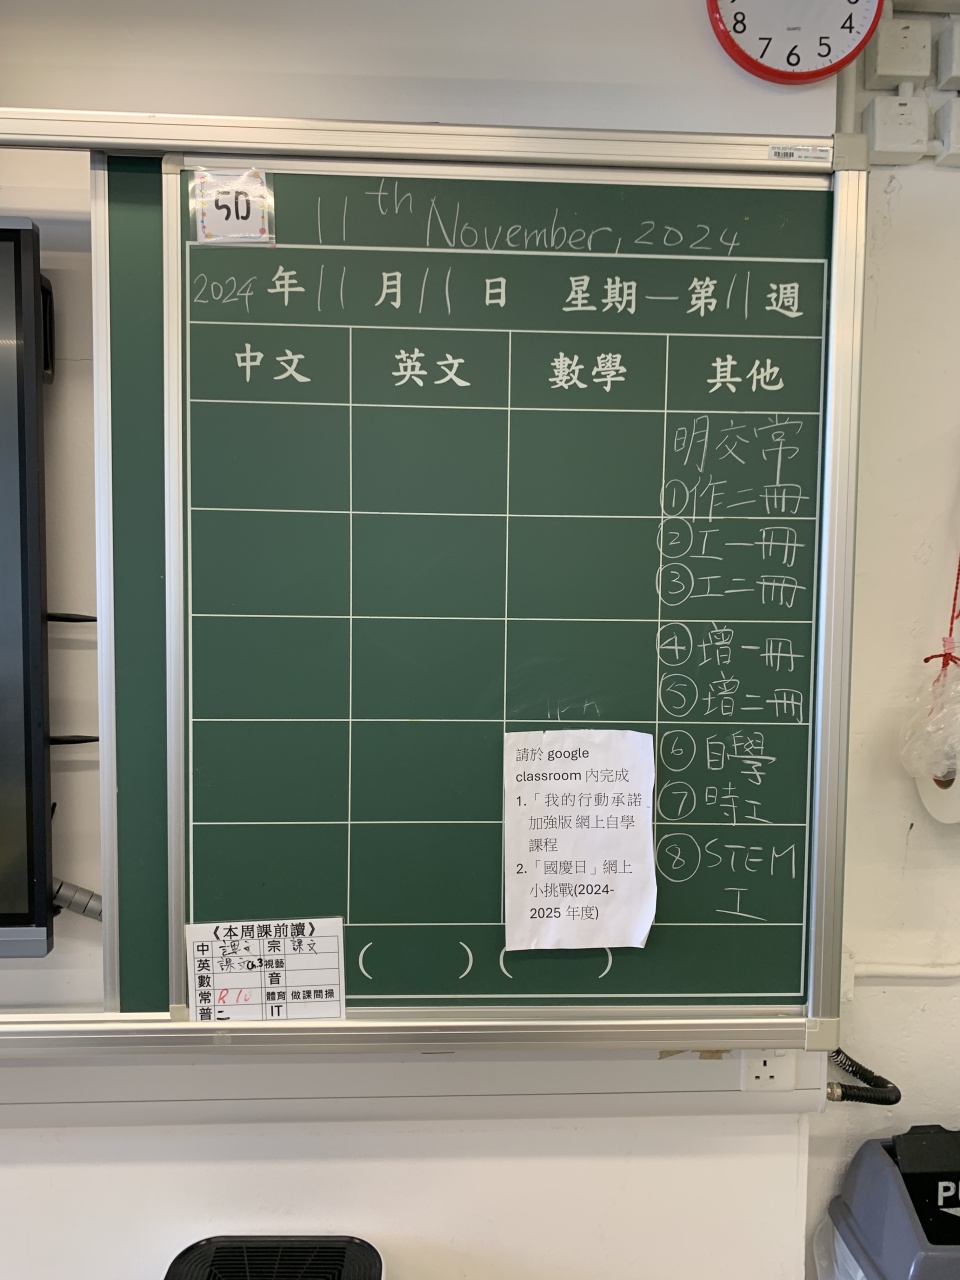 8 7 6 5 4
5D
11th November, 2024
2024年11月11日 星期一第11週
中文 英文 數學 其他
明交常
①作二冊
②工一冊
③工二冊
④增一冊
⑤增二冊
⑥自學
⑦時工
⑧STEM
工
請於 google
classroom 內完成
1.「我的行動承諾
加強版 網上自學
課程
2.「國慶日」網上
小挑戰(2024-
2025 年度)
《本周課前讀》
中 課文 宗 課文
英 課文 ch.3 視藝
數 音
常 R 10 體育 做課間操
普 二 IT
( ) ( )